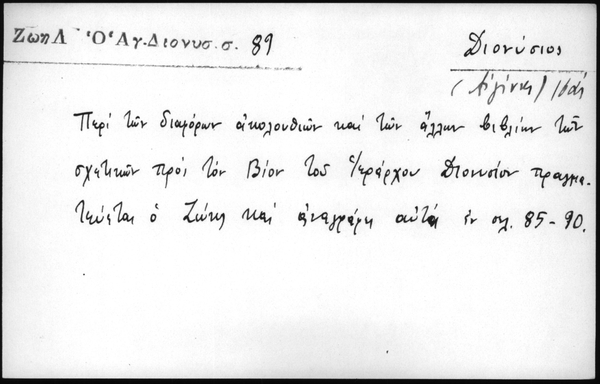 Ζωη Λ Ὁ Ἁγ. Διονυσ. σ. 89
Διονύσιος
(Αἰγίνης)
Περί τῶν διαφόρων ἀκολουθιῶν καί τῶν ἄλλων βιβλίων τῶν
σχετικῶν πρός τόν Βίον τοῦ Ἱεράρχου Διονυσίου πραγμα-
τεύεται ὁ Ζώης καί ἀναγράφει αὐτά ἐν σελ. 85-90.